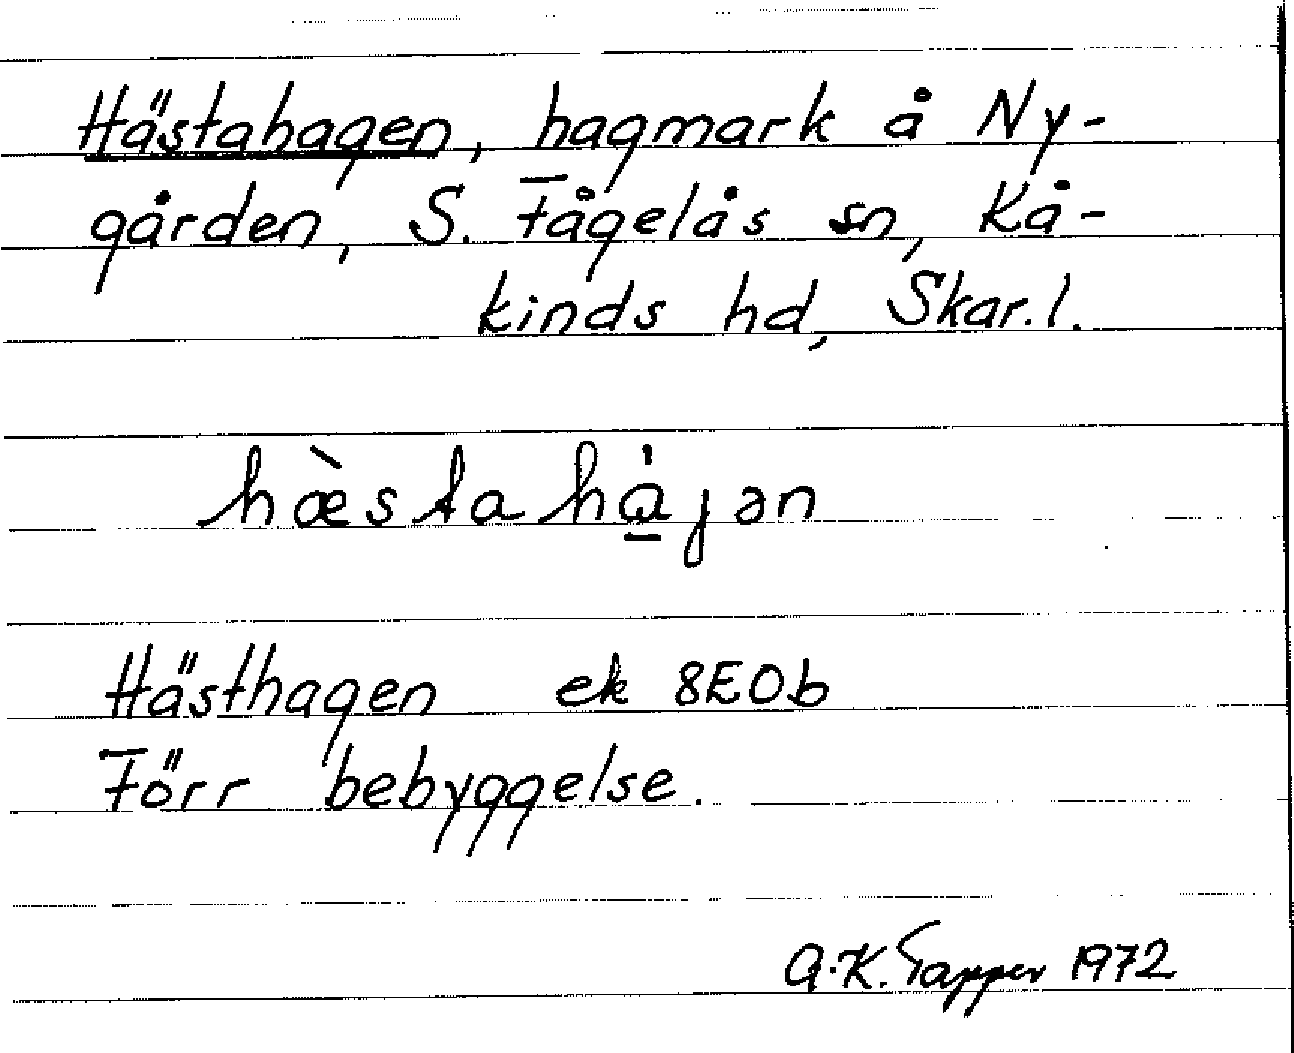 Hästahagen, hagmark å Ny-
gården, S. Fågelås sn, Kå-
kinds hd, Skar. l.
hæ̀stahạ̀̍jən
Hästhagen ek 8E0b
Förr bebyggelse.
A.K. Tapper 1972